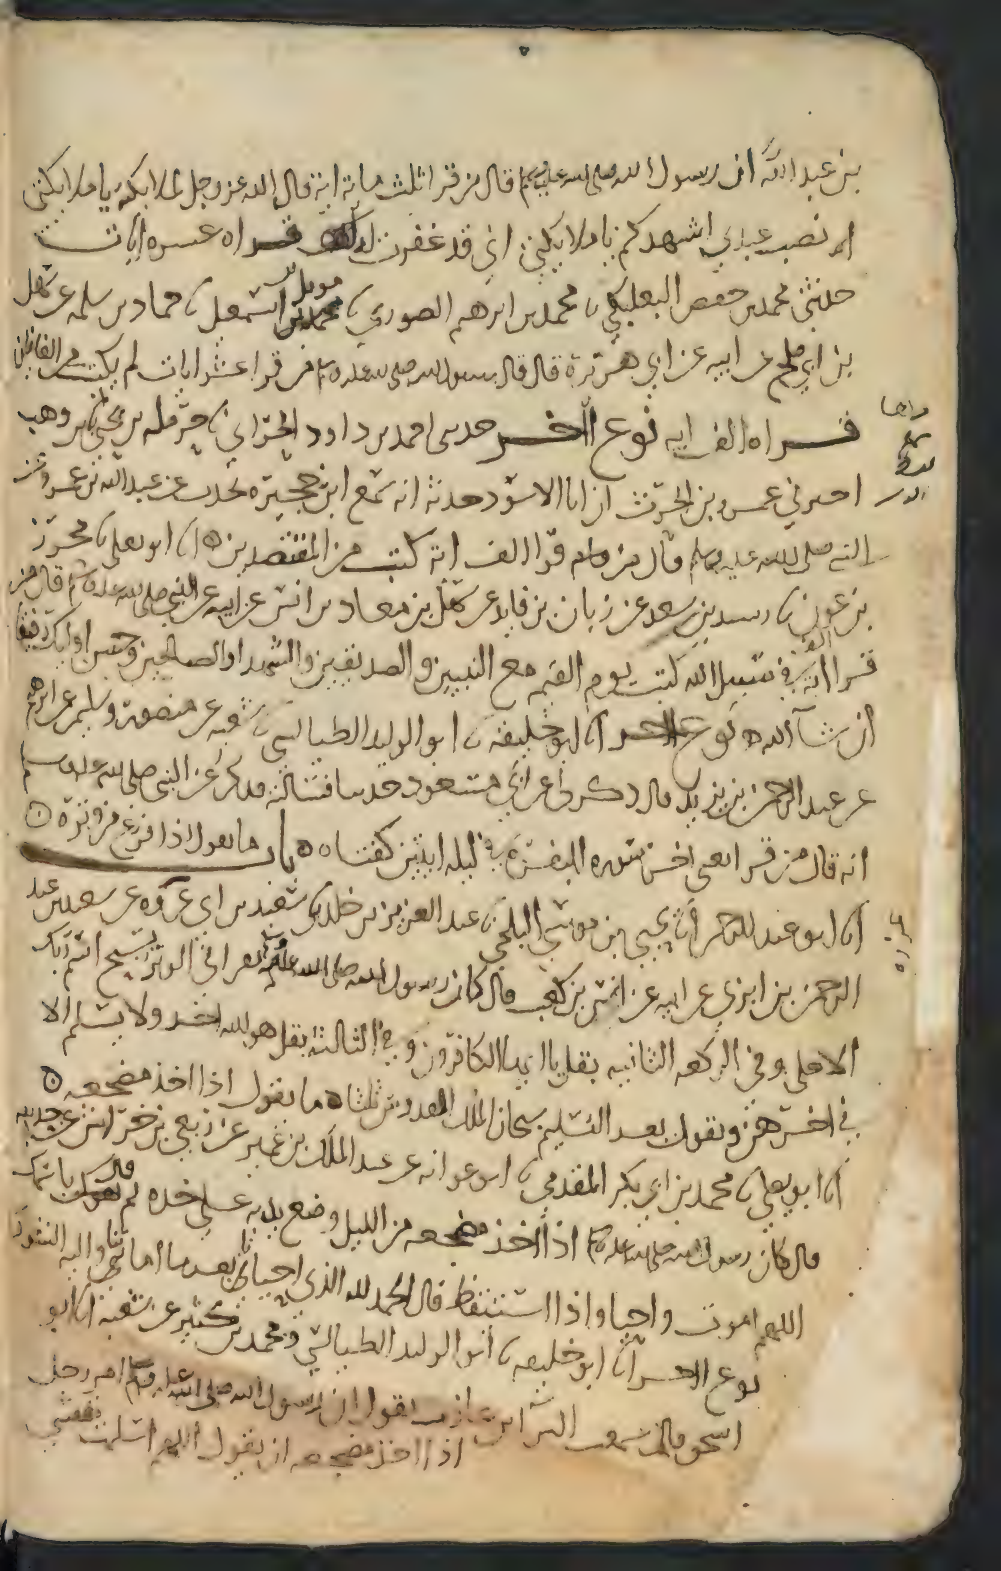 بن عبد الله ان رسول الله صلى الله عليه وسلم قال من قرا ثلث ماية اية قال الله عز وجل لملايكته يا ملايكتي
نصب عبدي اشهدكم يا ملايكتي اني قد غفرت له قراه عشره ايات
حدثني محمد بن حفص البعلبكي محمد بن ابرهيم الصوري مومل بن اسمعيل حماد بن سلمه عن سهيل
بن ابي صالح عن ابيه عن ابي هريرة قال قال رسول الله صلى الله عليه وسلم من قرا عشر ايات لم يكتب من الغافلين
قراه الف ايه نوع اخر حدثني احمد بن داود الحراني حرمله بن يحيى ابن وهب
اخبرني عمرو بن الحرث ان ابا الاسود حدثه انه سمع ابن حجيره يحدث عن عبد الله بن عمرو عن
النبي صلى الله عليه وسلم قال من قام قرا الف اية كتب من المقنطرين ابو يعلى محرز
بن عون رشدين بن سعد عن زبان بن فايد عن سهل بن معاذ بن انس عن ابيه عن النبي صلى الله عليه وسلم قال من
قرا الف اية في سبيل الله كتب يوم القيمه مع النبيين والصديقين والشهدا والصالحين وحسن اوليك رفيقا
ان شا الله نوع اخر ابو خليفه ابو الوليد الطيالسي شعبه عن منصور وسليمن عن ابرهيم
عن عبد الرحمن بن يزيد قال ذكر لي عن ابي مسعود حديثا فسالته فذكر عن النبي صلى الله عليه وسلم
انه قال من قرا بعني اخر سوره البقرة في ليله ايتين كفتاه باب ما يقول اذا فرغ من وتره
ابو عبد الرحمن يحيى بن موسى البلخي عبد العزيز بن خلد سعيد بن ابي عروه عن سعيد بن عبد
الرحمن بن ابزي عن ابيه عن ابي بن كعب قال كان رسول الله صلى الله عليه وسلم يقرا في الوتر بسبح اسم ربك
الاعلى وفي الركعه الثانيه بقل يا ايها الكافرون وفي الثالثه بقل هو الله احد ولا يسلم الا
في اخرهن ويقول بعد التسليم سبحان الملك القدوس ثلثا ما يقول اذا اخذ مضجعه
ابو يعلى محمد بن ابي بكر المقدمي ابو عوانه عن عبد الملك بن عمير عن ربعي بن خراش عن حذيفه
قال كان رسول الله صلى الله عليه وسلم اذا اخذ مضجعه من الليل وضع يده على خده ثم قال باسمك
اللهم اموت واحيا واذا استيقظ قال الحمد لله الذي احيانا بعد ما اماتنا واليه النشور
نوع اخر ابو خليفه ابو الوليد الطيالسي ومحمد بن كثير عن شعبة ابو
اسحق قال سمعت البرا ابن عازب يقول ان رسول الله صلى الله عليه وسلم امر رجل
اذا اخذ مضجعه ان يقول اللهم اسلمت نفسي